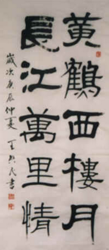 黃鶴西樓月
長江萬里情
歲次庚辰仲夏 民書